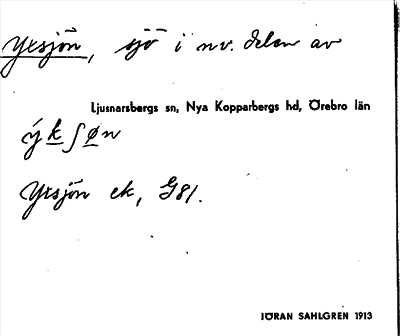 Yxsjön, sjö i nv. delen av
Ljusnarsbergs sn, Nya Kopparbergs hd, Örebro län
ýkʃøn
Yxsjön ek, G81.
JÖRAN SAHLGREN 1913